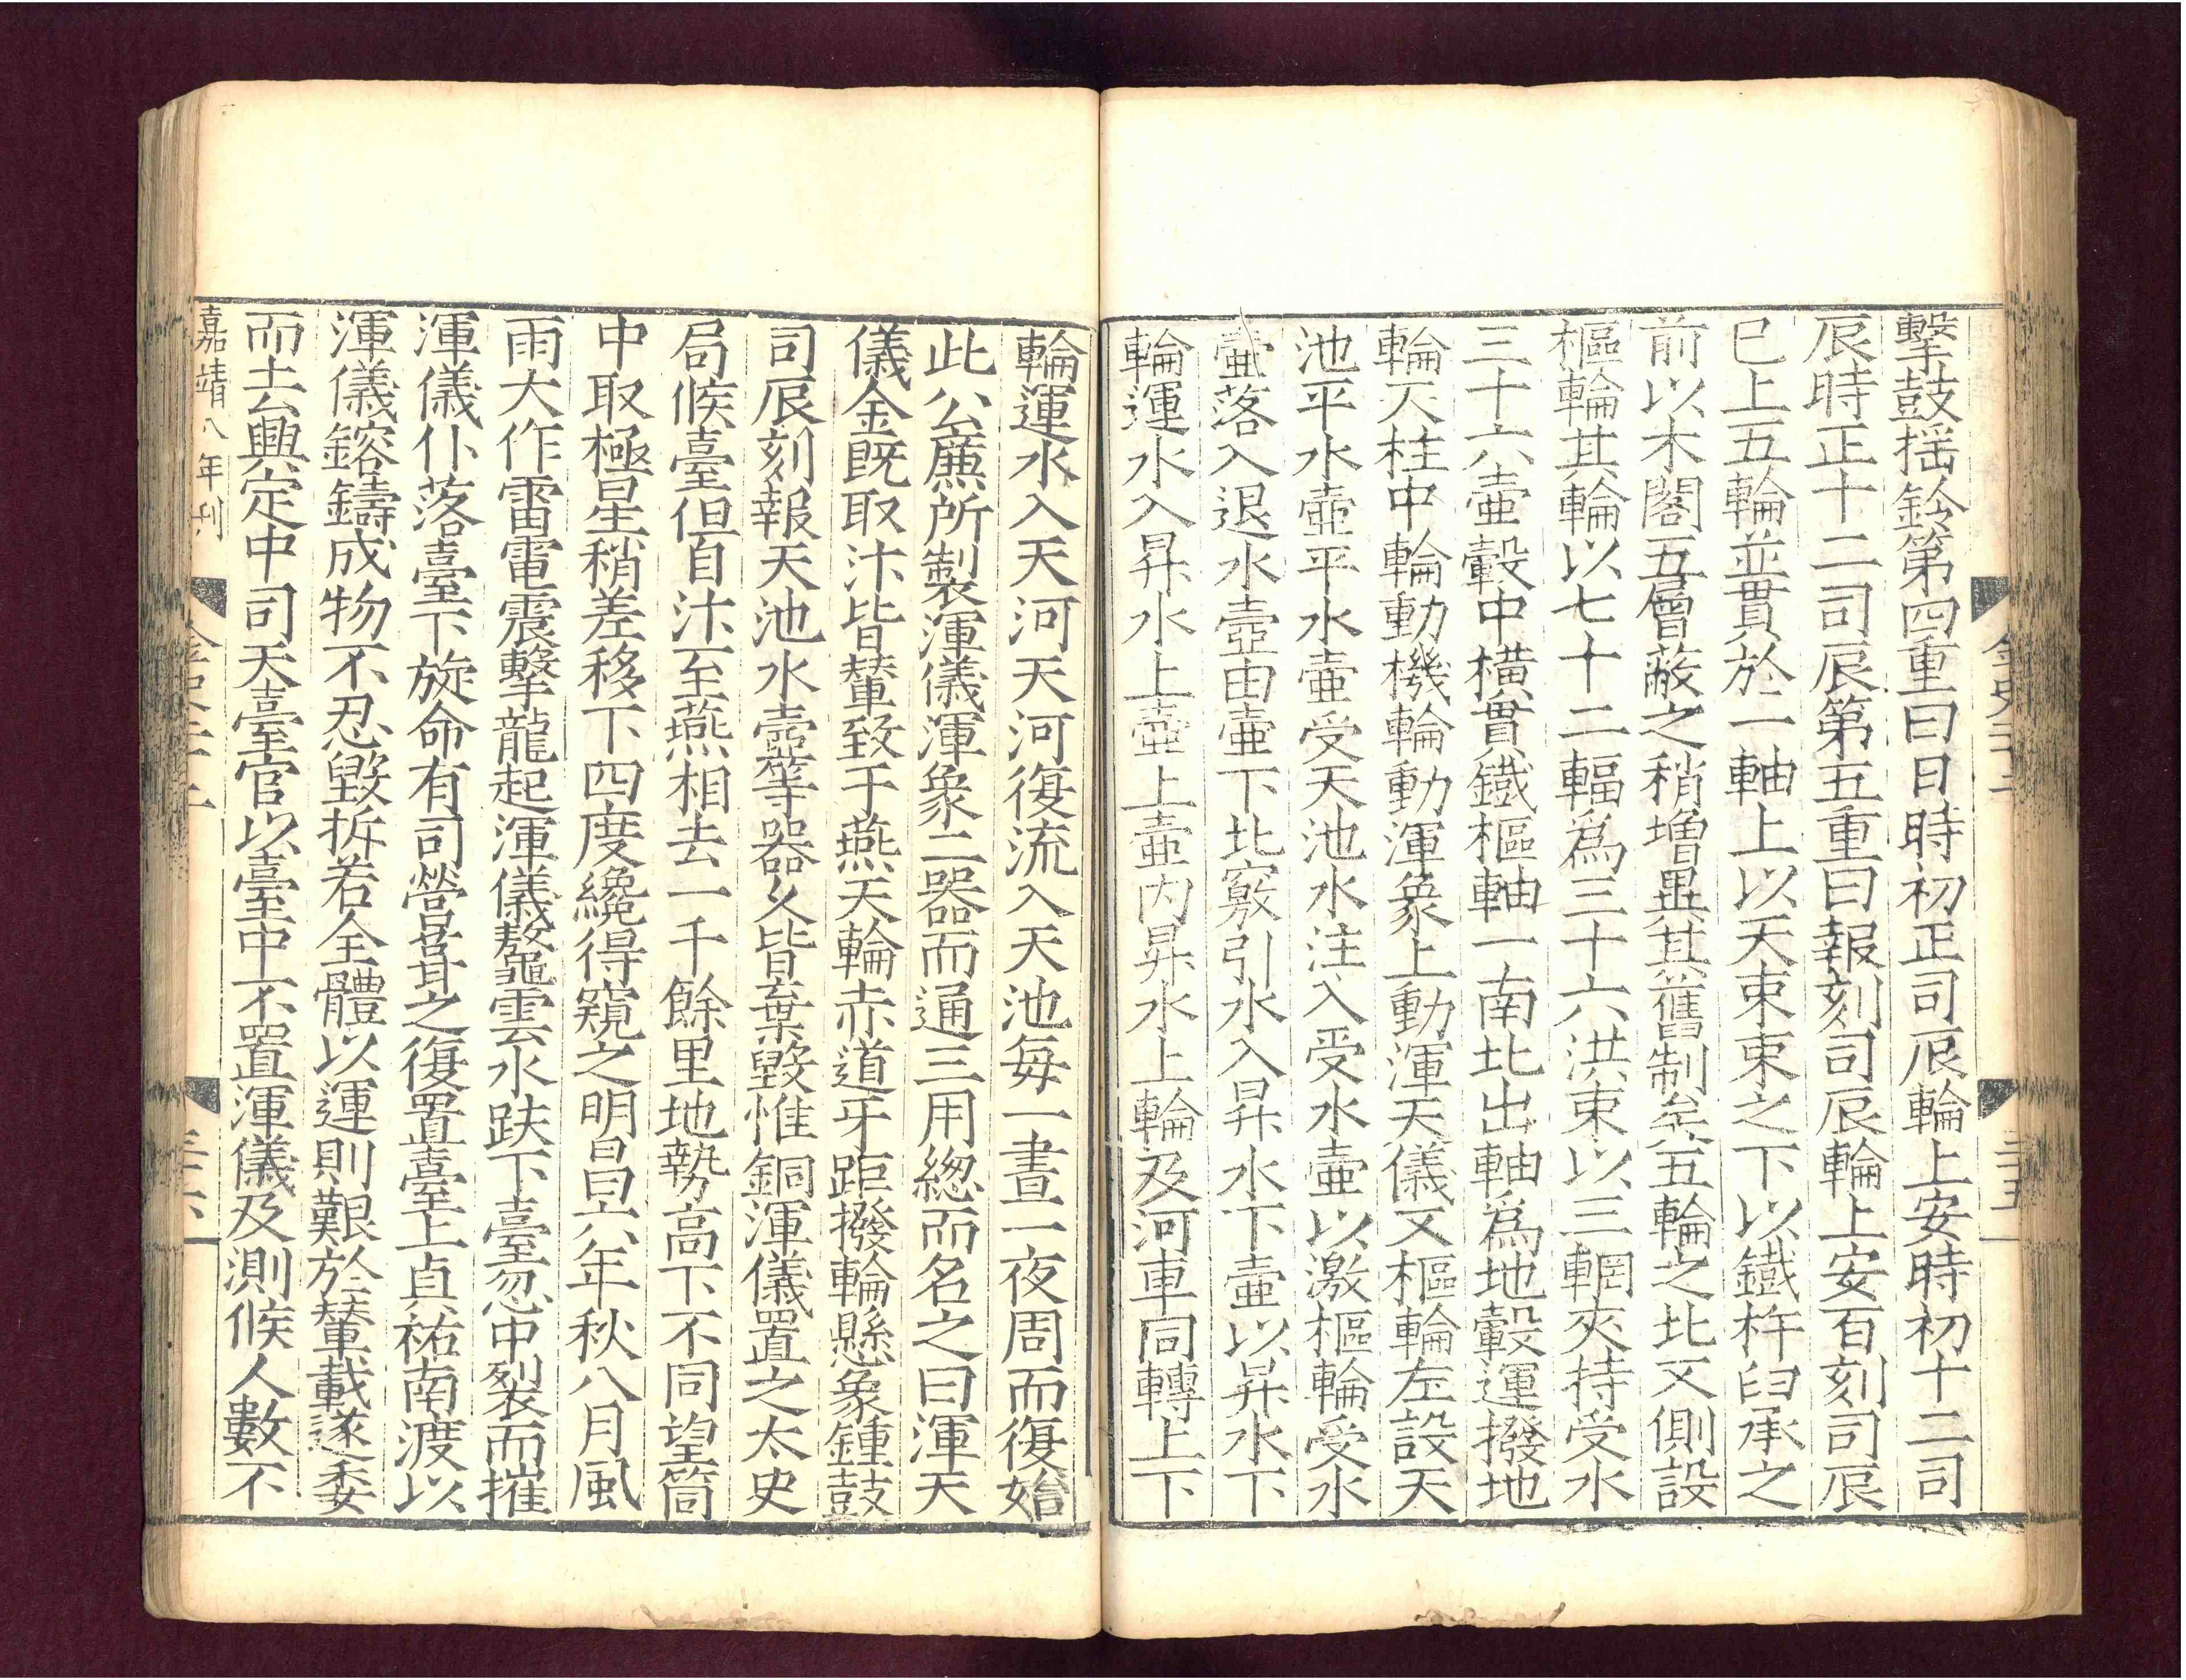 擊鼓揺鈴第四重曰日時初正司辰輪上安時初十二司
辰時正十二司辰第五重曰報刻司辰輪上安百刻司辰
巳上五輪並貫於一軸上以天束束之下以鐵杵臼承之
前以木閣五層蔽之稍増異其舊制矣五輪之北又側設
樞輪其輪以七十二輻爲三十六洪束以三輞夾持受水
三十六壷轂中横貫鐵樞軸一南北出軸爲地轂運撥地
輪天柱中輪動機輪動渾象上動渾天儀又樞輪左設天
池平水壷平水壷受天池水注入受水壷以激樞輪受水
壷落入退水壷由壷下北竅引水入昇水下壷以昇水下
輪運水入昇水上壷上壷内昇水上輪及河車同轉上下
輪運水入天河天河復流入天池毎一晝一夜周而復始
此公廉所製渾儀渾象二器而通三用緫而名之曰渾天
儀金既取汴皆輦致于燕天輪赤道牙距撥輪懸象鍾鼓
司辰刻報天池水壷等器久皆棄毀惟銅渾儀置之太史
局候臺但自汴至燕相去一千餘里地勢高下不同望筒
中取極星稍差移下四度纔得窺之明昌六年秋八月風
雨大作雷電震擊龍起渾儀鼇雲水趺下臺忽中裂而摧
渾儀仆落臺下旋命有司營葺之復置臺上貞祐南渡以
渾儀鎔鑄成物不忍毀拆若全體以運則艱於輦載遂委
而去興定中司天臺官以臺中不置渾儀及測候人數不
嘉靖八年刊
金史二十二